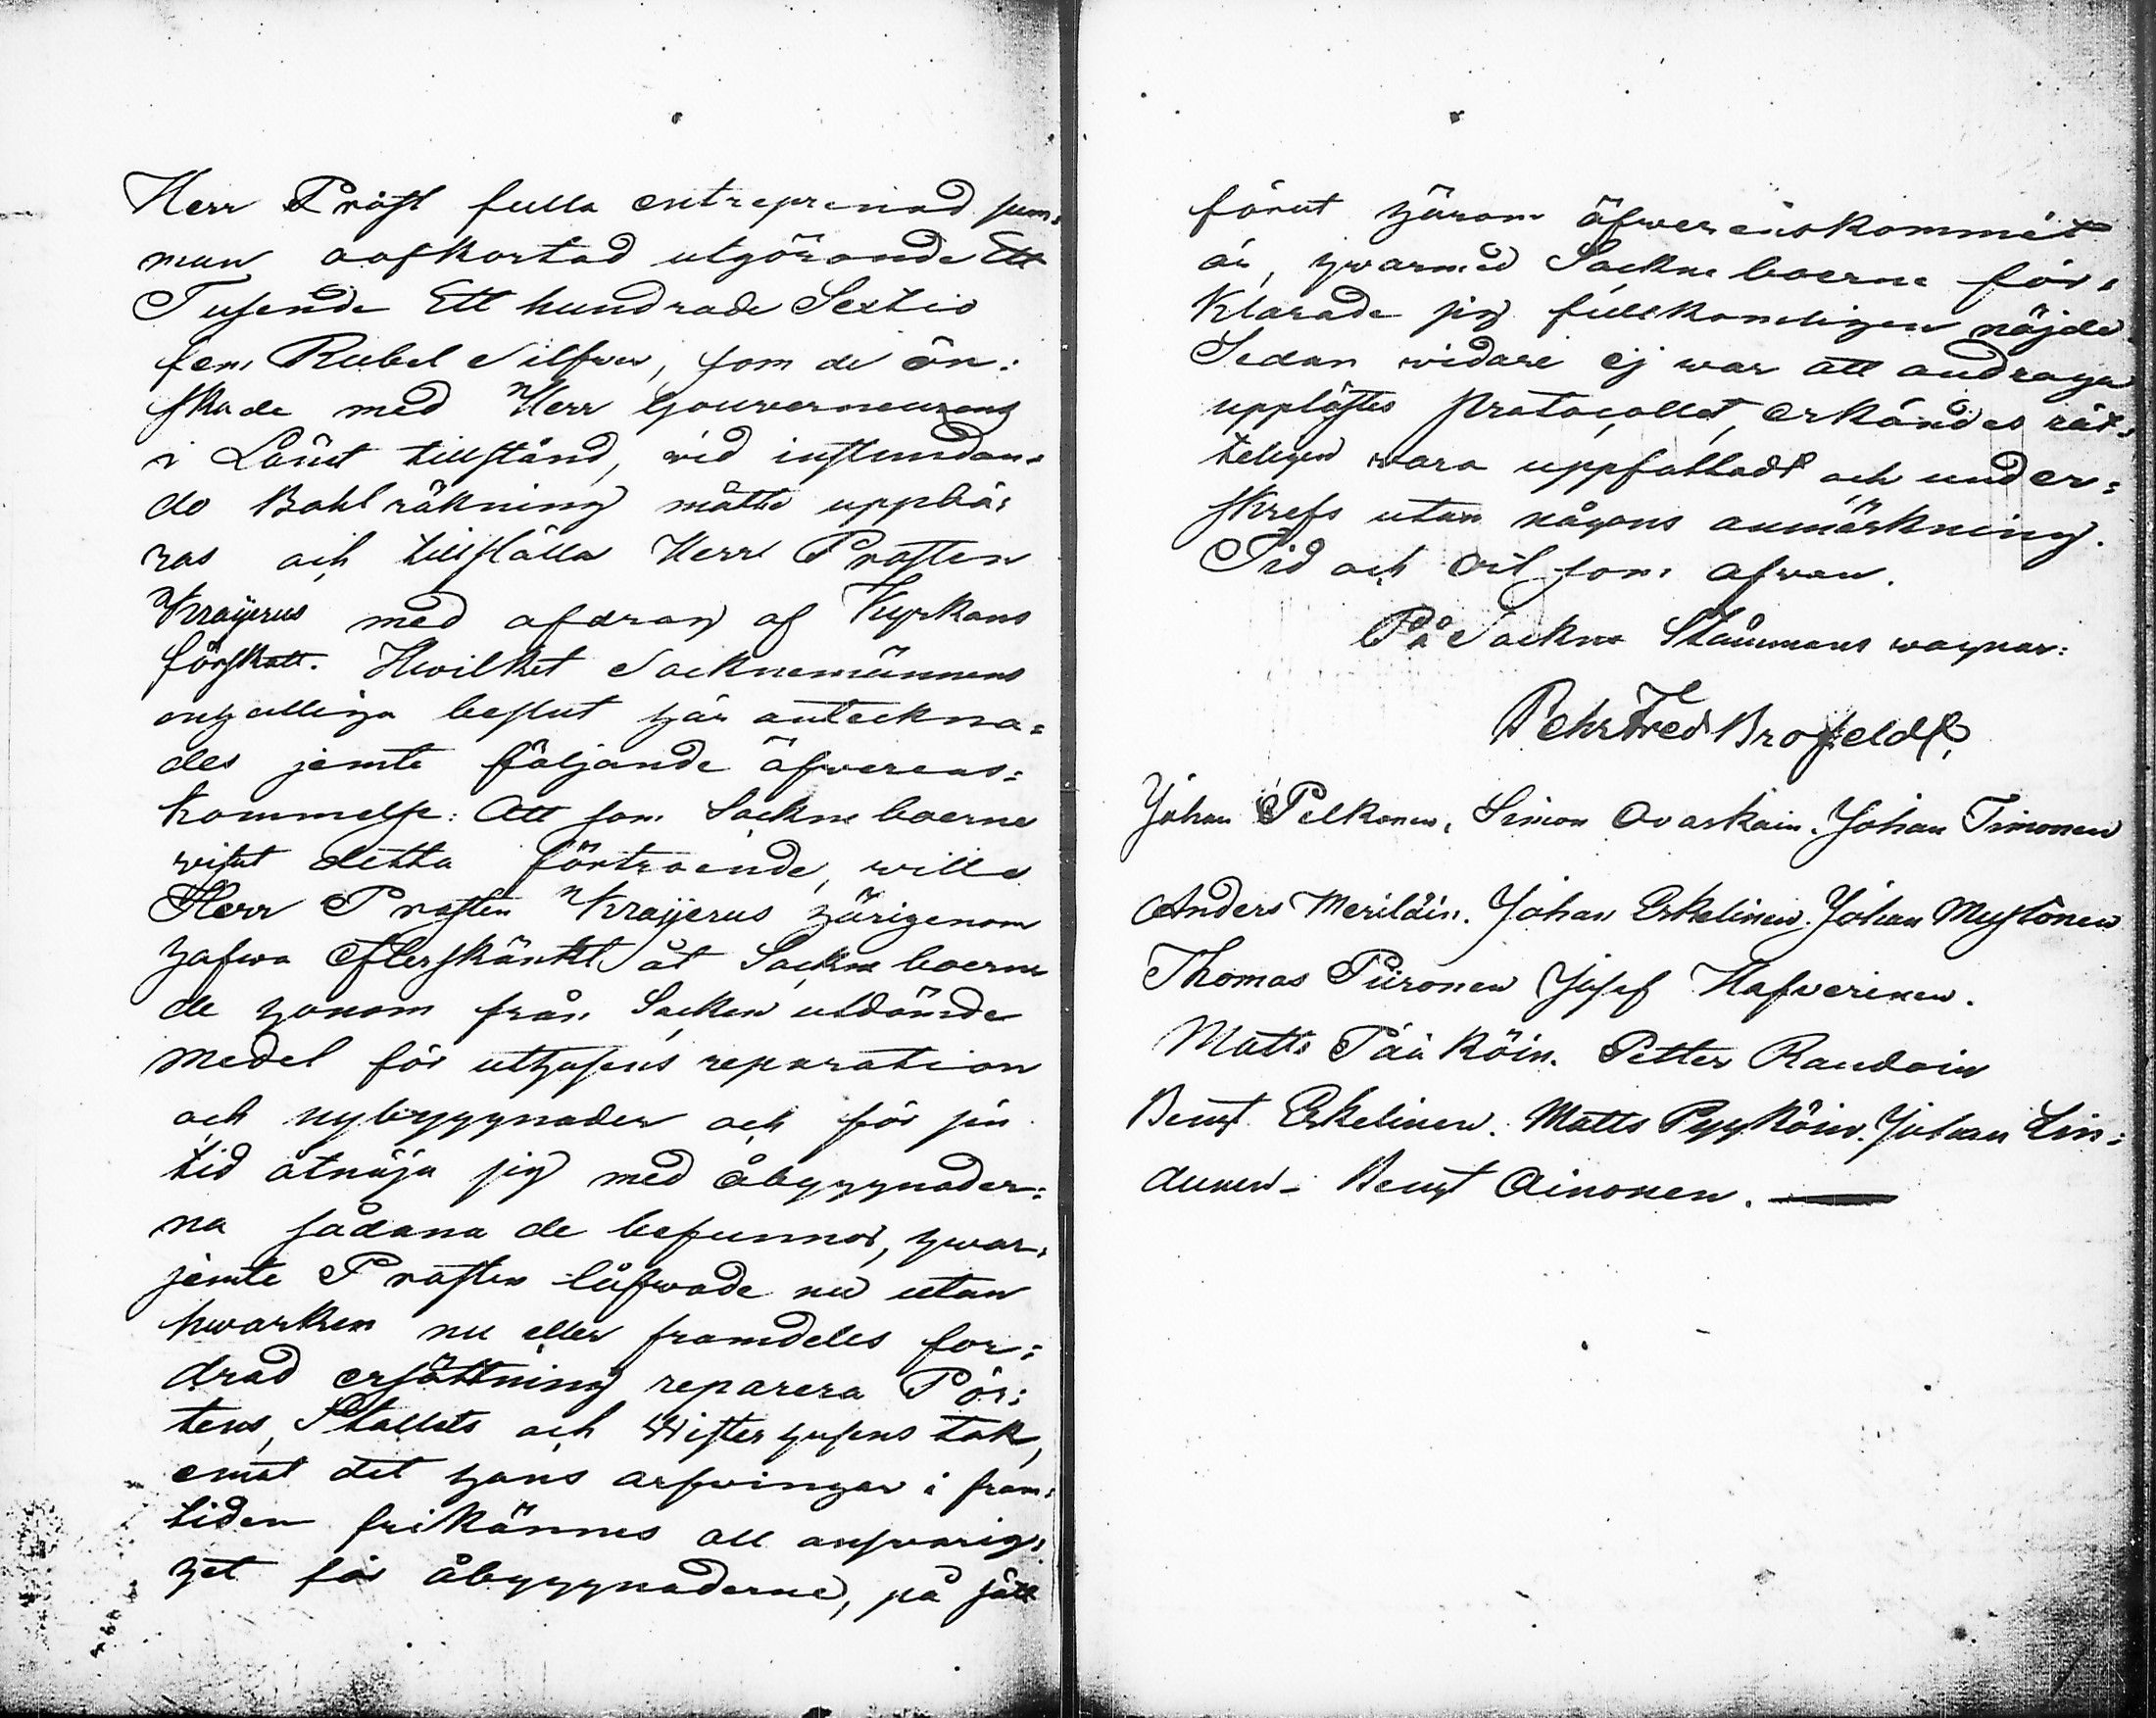 Herr Pråst fulla entreprenad sum:
man aafkortad utgörande Ett
Tusende Ett hundrade Sextio
fem Rubel Silfwer, som de ön:
skade med Herr Gouverneurens
i Länet tillstånd, wid instundan:
de Bohl räkning måtte uppbä:
ras och tillställa Herr Prosten
Krayerus med afdrag af Kyrkans
förskott. Hwilket Socknemännens
enhälliga beslut här anteckna:
des jemte följande öfwerens:
kommelse: Att som Sockne boerne
wisat detta förtroende, wille
Herr Prosten Krayerus härigenom
hafwa efterskänkt åt Sockne boerne
de honom från Socken utdömde
medel för uthusens reparation
och nybyggnader och för sin
tid åtnöja sig med åbyggnader:
na sådana de befunnos, hwar:
jemte Prosten låfwade nu utan
hwarken nu eller framdeles for:
drad ersättning reparera Pör:
tens, Stallets och Wisterhusens tak,
emot det hans arfwingar i fram:
tiden frikännes all answarig:
het för åbyggnaderne, på sätt
förut härom öfwerenskommit
är, hwarmed Sockne boerne för:
klarade sig fullkomligen nöjde.
Sedan widare ej war att andraga
upplästes Protocollet, erkändes rät:
teligen wara uppfattadt och under:
skrefs utan någons anmärkning.
Tid och ort som ofwan.
På Sockne Stämmans wägnar:
Pehr Fred Brofeldt,
Johan Pelkonen, Simon Ovaskain. Johan Timonen
Anders Meriläin. Johan Eskelinen. Johan Mustonen
Thomas Piironen Josef Hafverinen.
Matts Pääköin. Petter Raudoin
Bengt Eskelinen. Matts Pyyköin. Johan Lin:
dunen - Bengt Ainonen.